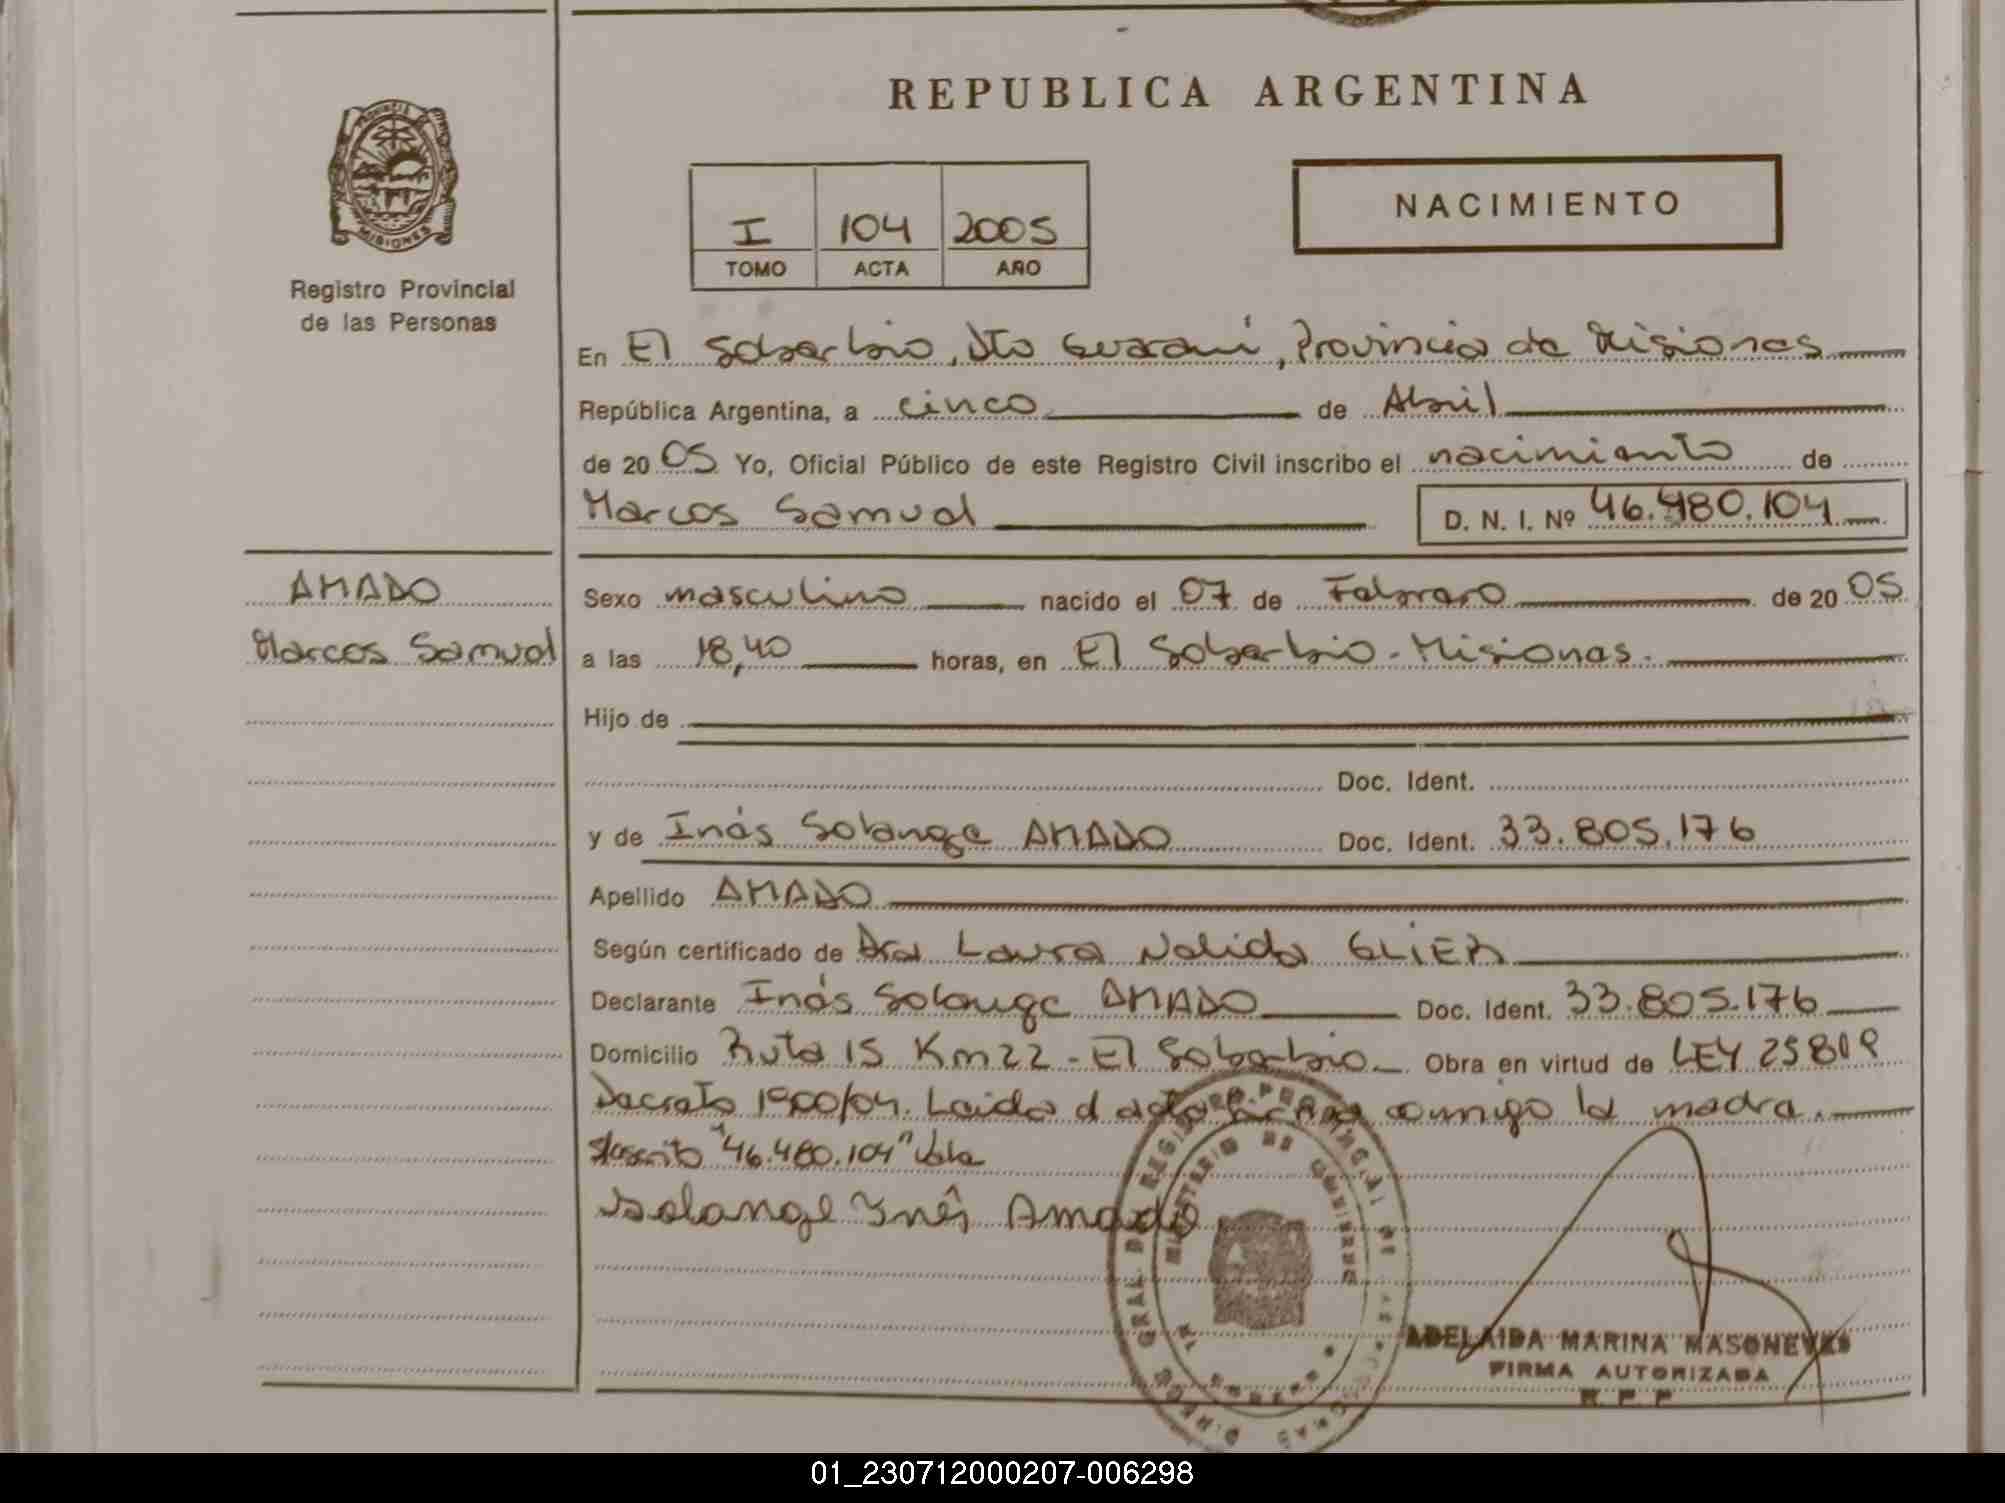 REPUBLICA ARGENTINA
PROVINCIA
MISIONES
Registro Provincial
de las Personas
I 104 2005
TOMO ACTA AÑO
NACIMIENTO
En El Soberbio, Dto Guaraní, Provincia de Misiones
República Argentina, a cinco de Abril
de 20 05 Yo, Oficial Público de este Registro Civil inscribo el nacimiento de
Marcos Samuel D. N. I. Nº 46.480.104
AMADO
Marcos Samuel
Sexo masculino nacido el 07 de Febrero de 20 05
a las 18,40 horas, en El Soberbio - Misiones.
Hijo de
Doc. Ident.
y de Inés Solange AMADO Doc. Ident. 33.805.176
Apellido AMADO
Según certificado de Dra Laura Nelida GLIER
Declarante Inés Solange AMADO Doc. Ident. 33.805.176
Domicilio Ruta 15 Km 22 - El Soberbio Obra en virtud de LEY 25819
Decreto 1900/04. Leída el acta firma conmigo la madre.
S/escrito "46.480.104" Vale
Solange Inês Amado
MINISTERIO DE GOBIERNO
ADELAIDA MARINA MASONEVES
FIRMA AUTORIZADA
R. P. P
01_230712000207-006298